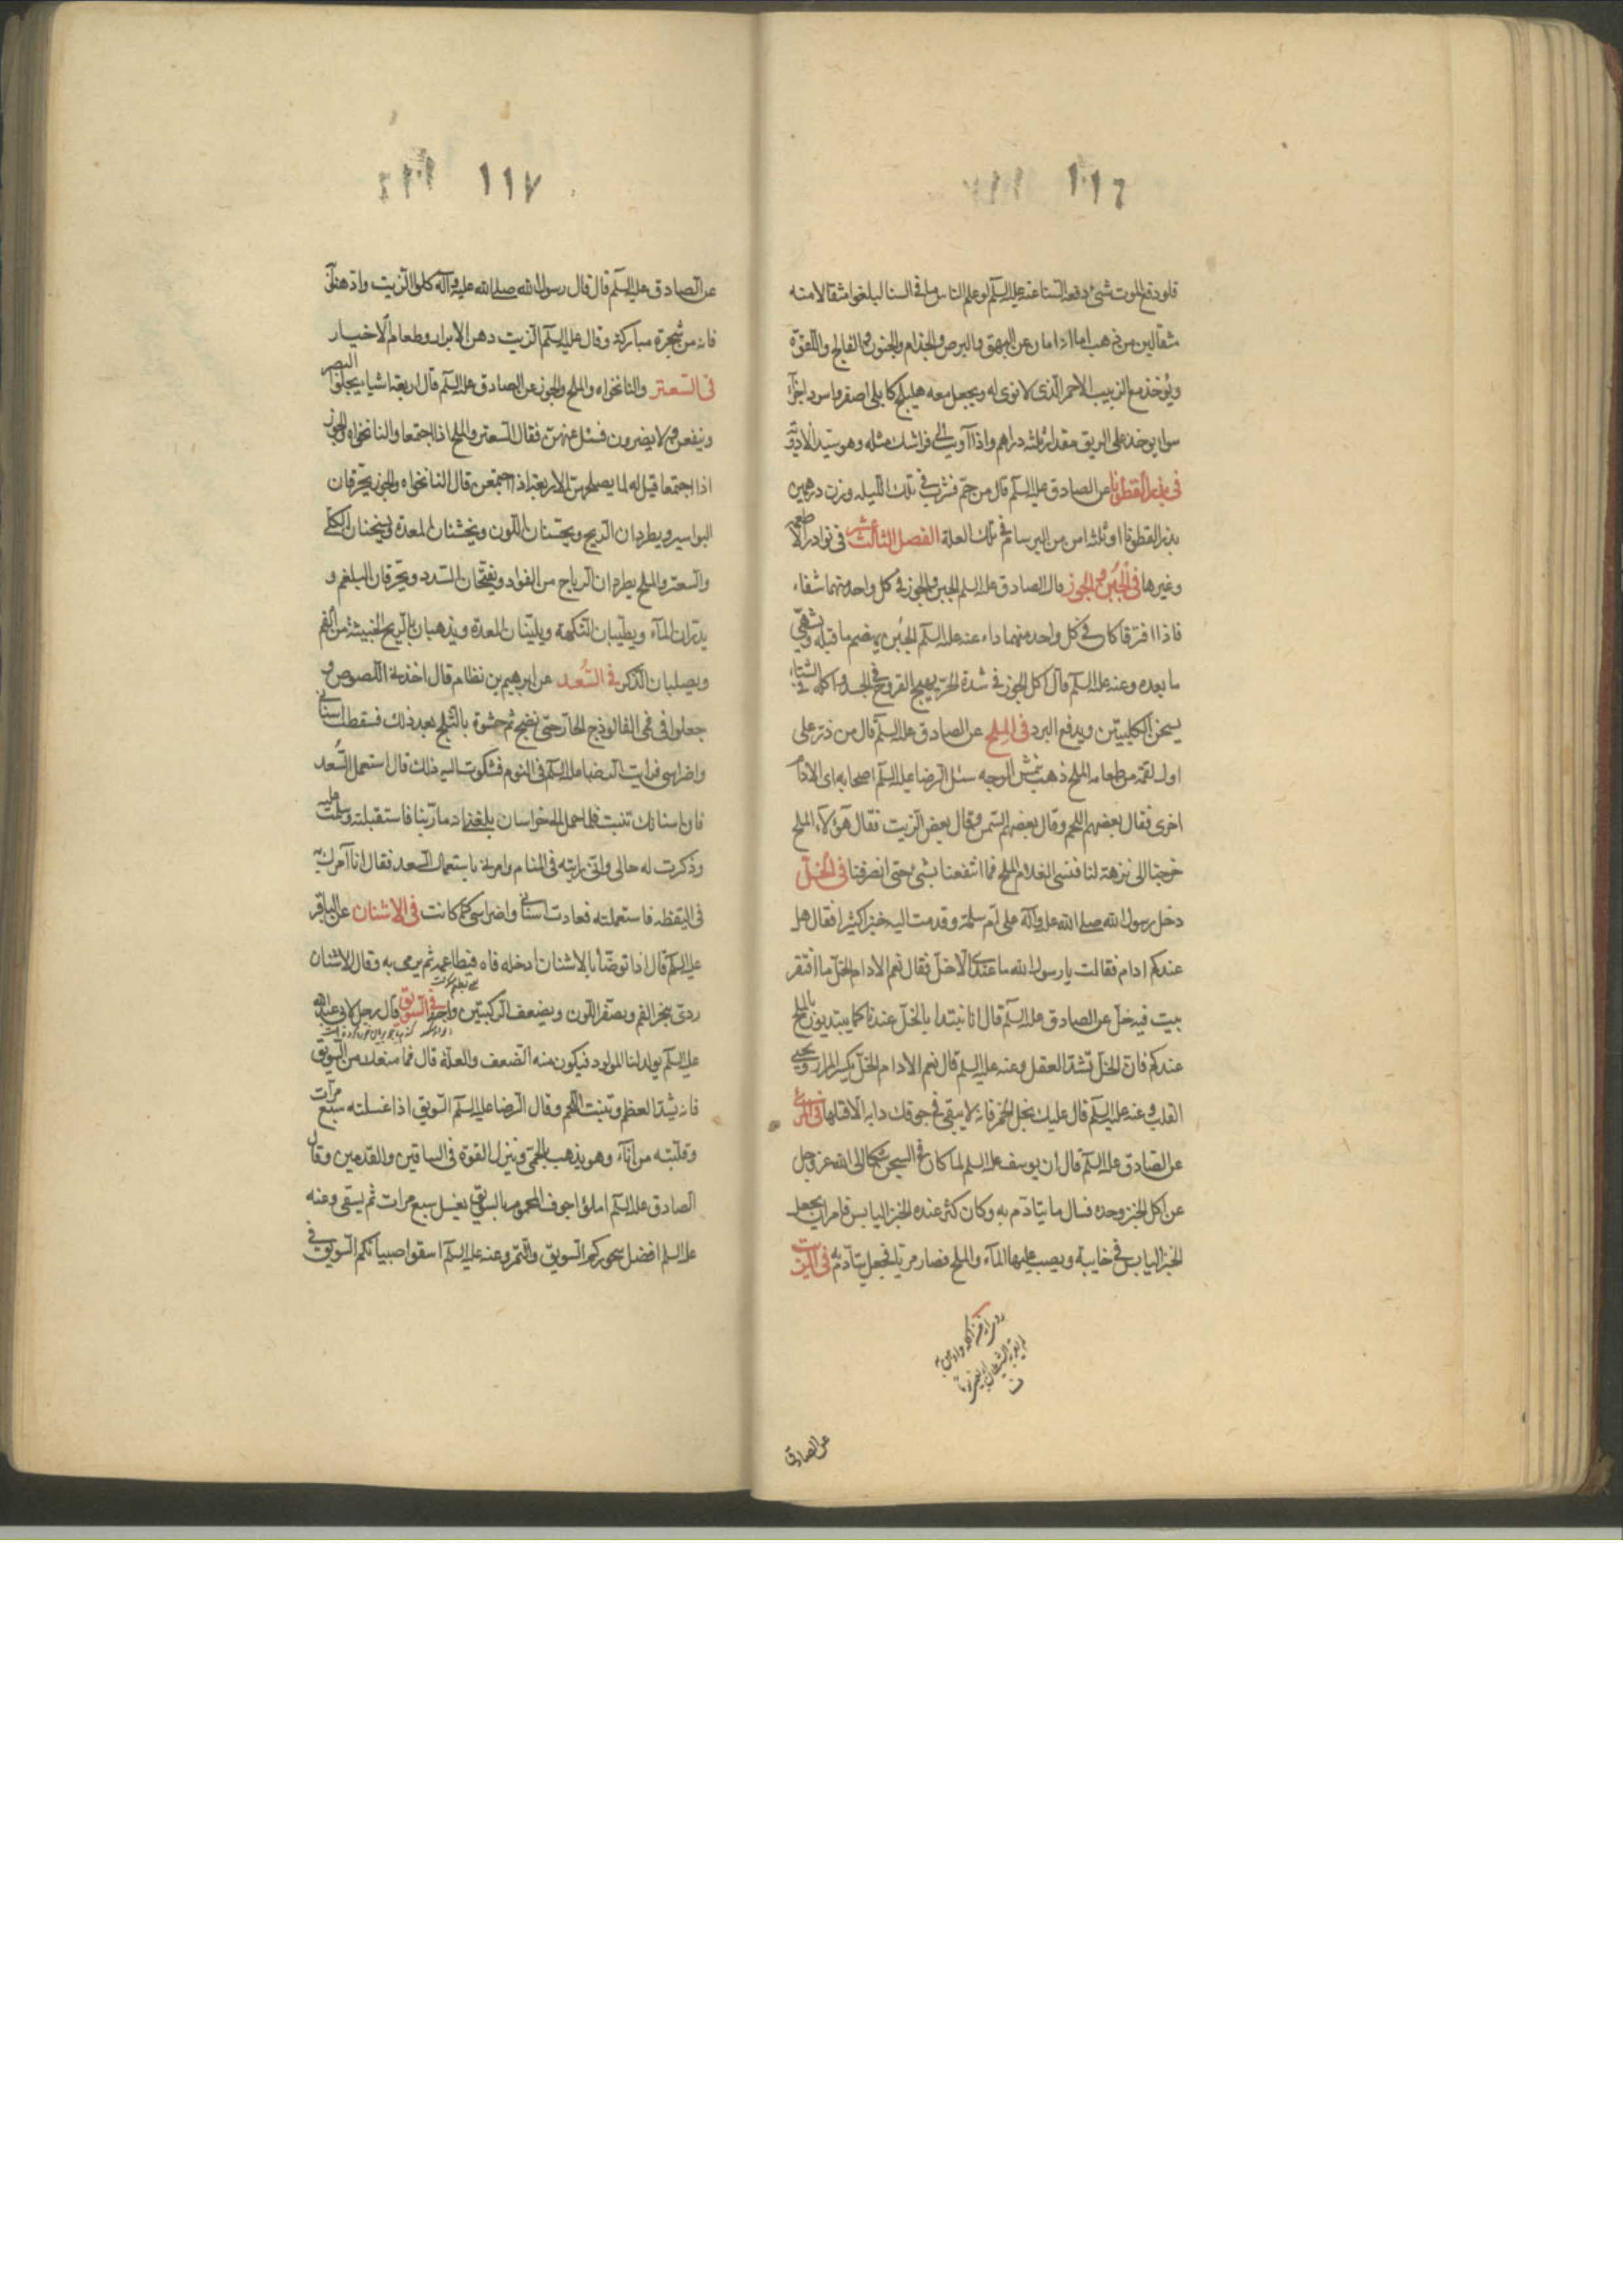 ١١٦
فلو دفع الموت شئ دفعه السنا عنه عليه السلم لو علم الناس ما فى السنا لبلغوا مثقالا منه
مثقالين من ذهب اما انه امان من البهق والبرص والجذام والجنون والفالج واللقوة
ويؤخذ مع الزبيب الاحمر الذى لا نوى له ويجعل معه هليلج كابلى اصفر واسود اجزآء
سوا يوخذ على الريق مقدار ثلثه دراهم واذا آويت الى فراشك مثله وهو سيد الادوية
فى بذر القطونا عن الصادق عليه السلم قال من حم فشرب فى تلك الليله وزن درهمين
بذر القطونا او ثلثه امن من البرسام فى تلك العلة الفصل الثالث عشر فى نوادر الاطعمة
وغيرها فى الجبن والجوز قال الصادق عليه السلم الجبن والجوز فى كل واحد منهما شفاء
فاذا افترقا كان فى كل واحد منهما داء عنه عليه السلم الجبن يهضم ما قبله ويشهى
ما بعده وعنه عليه السلم قال اكل الجوز فى شدة الحر يهيج القروح فى الجسد واكله فى الشتاء
يسخن الكليتين ويدفع البرد فى الملح عن الصادق عليه السلم قال من ذر على
اول لقمة من طعامه الملح ذهب بنمش الوجه سئل الرضا عليه السلم اصحابه اى الادام
اخرى فقال بعضهم اللحم وقال بعضهم السمن وقال بعض الزيت فقال هؤلآء الملح
خرجنا الى نزهة لنا فنسى الغلام الملح فما انتفعنا بشئ حتى انصرفنا فى الخل
دخل رسول الله صلى الله عليه وآله على ام سلمة وقدمت اليه خبزا كثيرا فقال هل
عندكم ادام فقالت يا رسول الله ما عندى الا خل فقال نعم الادام الخل ما افتقر
بيت فيه خل عن الصادق عليه السلم قال انا نبتدا بالخل عندنا كما يبتديون بالملح
عندكم فان الخل تشد العقل وعنه عليه السلم قال نعم الادام الخل يكسر المرار ويحيى
القلب وعنه عليه السلم قال عليك بخل الخمر فانه لا يبقى فى جوفك دابه الا قتلها فى المرى
عن الصادق عليه السلم قال ان يوسف عليه السلم لما كان فى السجن شكا الى الله عز وجل
عن اكل الخبز وحده فسال ما يتادم به وكان كثر عنده الخبز اليابس فامر ان يجعل
الخبز اليابس فى خابية ويصب عليها المآء والملح فصار مريا فجعل يتآدم به فى الزيت
عن الصادق
١١٧
عن الصادق عليه السلم قال قال رسول الله صلى الله عليه وآله كلوا الزيت وادهنوا
فانه من شجرة مباركة وقال عليه السلم الزيت دهن الابرار وطعام الاخيار
فى السعتر والنانخواه والملح والجوز عن الصادق عليه السلم قال اربعة اشيا يجلوا البصر
وينفعن ولا يضرون فسئل عنهن فقال السعتر والملح اذا اجتمعا والنانخواه والجوز
اذا اجتمعا قيل له لما يصلح هن الاربعة اذا اجتمعن قال النانخواه والجوز يحرقان
البواسير ويطردان الريح ويحسنان اللون ويخشنان المعدة ويسخنان الكلى
والسعتر والملح يطردان الرياح من الفواد ويفتحان السدد ويحرقان البلغم و
يدران المآء ويطيبان النكهة ويلينان المعدة ويذهبان بالريح الخبيثة من الفم
ويصلبان الذكر فى السعد عن ابرهيم بن نظام قال اخذنى اللصوص و
جعلوا فى فمى الفالوذج الحار حتى نضج ثم حشوة بالثلج بعد ذلك فسقطت اسنانى
واضراسى فرايت الرضا عليه السلم فى النوم فشكوت اليه ذلك قال استعمل السعد
فان اسنانك تنبت فلما حمل الى خراسان بلغنى انه مار بنا فاستقبلته وسلمت عليه
وذكرت له حالى وانى رايته فى المنام وامرنى باستعمال السعد فقال انا آمرك به
فى اليقظه فاستعملته فعادت اسنانى واضراسى كما كانت فى الاشنان عن الباقر
عليه السلم قال اذا توضأ بالاشنان ادخله فاه فيطاعمه ثم يرمى به وقال الاشنان
ردى يبخر الفم ويصفر اللون ويضعف الركبتين واحبه فى السويق قال رجل لابى عبد الله
عليه السلم يولد لنا المولود فيكون منه الضعف والعلة قال فما منعك من السويق
فانه يشد العظم وتنبت اللحم وقال الرضا عليه السلم السويق اذا غسلته سبع مرآت
وقلبته من انآء وهو يذهب بالحمى وينزل القوة فى الساقين والقدمين وقال
الصادق عليه السلم املؤا جوف المحموم بالسويق يغسل سبع مرات ثم يسقى وعنه
عليه السلم افضل سحوركم السويق والتمر وعنه عليه السلم اسقوا صبيانكم السويق فى